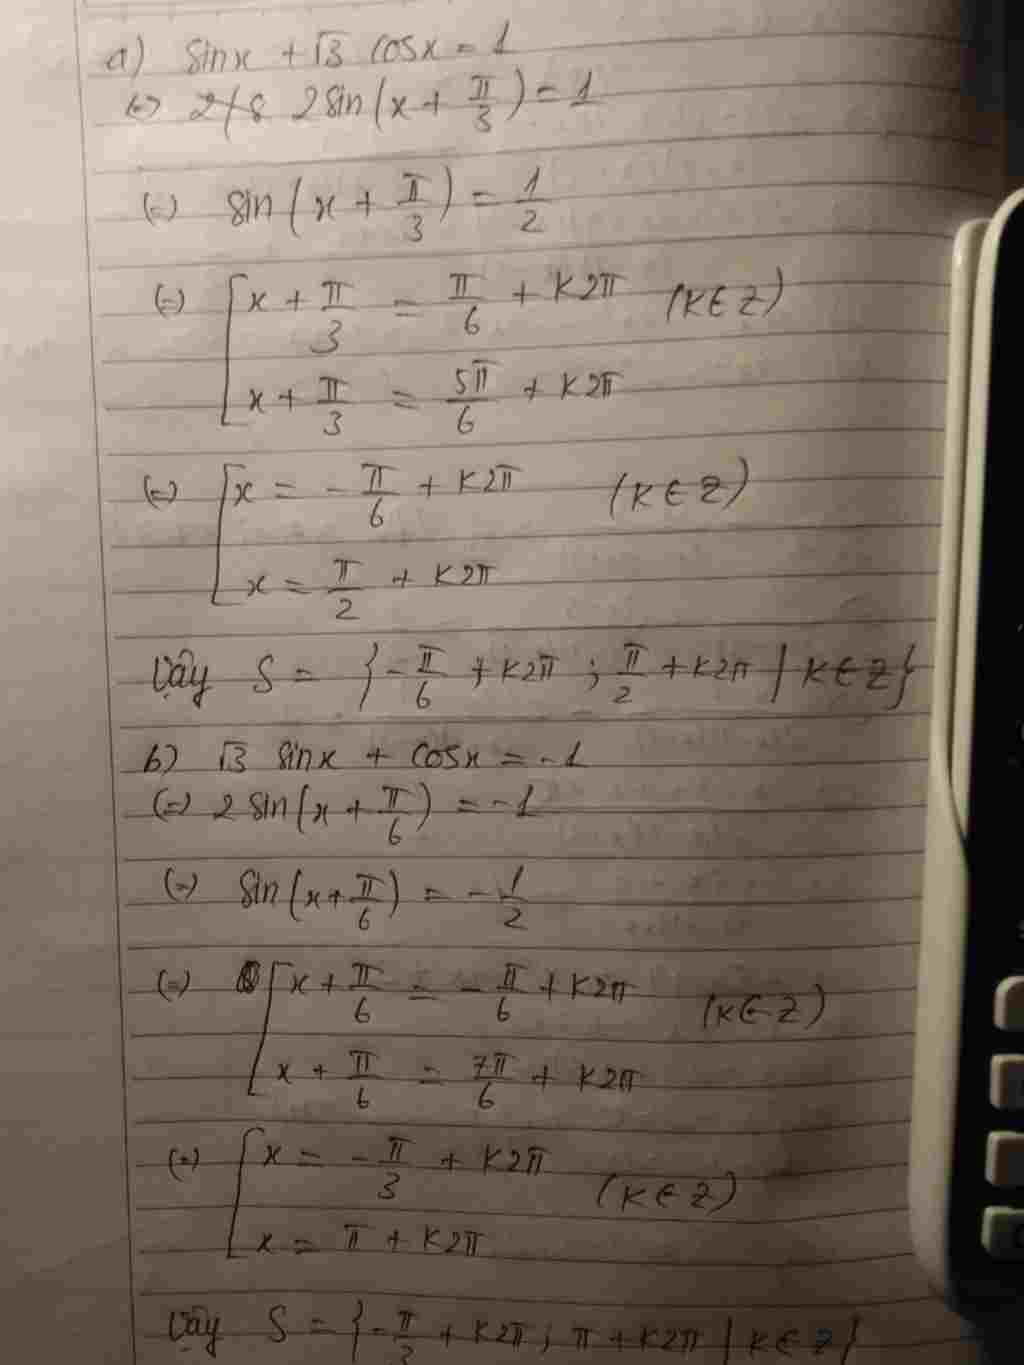 a) sinx + √3 cosx = 1
(=) 2 sin(x + π/3) = 1
(=) sin(x + π/3) = 1/2
(=) [ x + π/3 = π/6 + k2π (k∈Z)
x + π/3 = 5π/6 + k2π
(=) [ x = -π/6 + k2π (k∈Z)
x = π/2 + k2π
Vậy S = {-π/6 + k2π ; π/2 + k2π | k∈Z}
b) √3 sinx + cosx = -1
(=) 2 sin(x + π/6) = -1
(=) sin(x + π/6) = -1/2
(=) [ x + π/6 = -π/6 + k2π (k∈Z)
x + π/6 = 7π/6 + k2π
(=) [ x = -π/3 + k2π (k∈Z)
x = π + k2π
Vậy S = {-π/3 + k2π ; π + k2π | k∈Z}